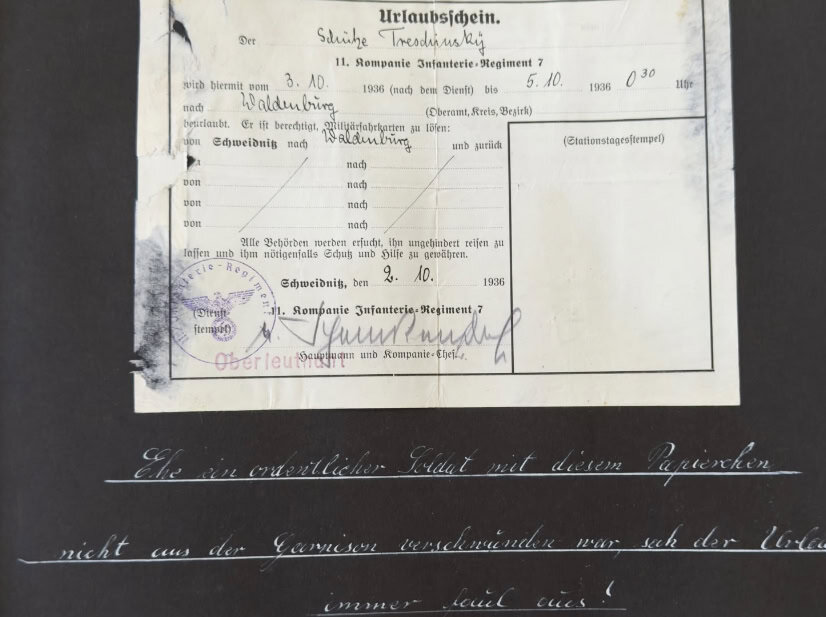 Urlaubsschein.
Der Schütze Treschinsky
11. Kompanie Infanterie-Regiment 7
wird hiermit vom 3. 10. 1936 (nach dem Dienst) bis 5. 10. 1936 0³⁰ Uhr
nach Waldenburg (Oberamt, Kreis, Bezirk)
beurlaubt. Er ist berechtigt, Militärfahrkarten zu lösen:
von Schweidnitz nach Waldenburg und zurück
(Stationstagesstempel)
nach
von nach
von nach
von nach
Alle Behörden werden ersucht, ihn ungehindert reisen zu
lassen und ihm nötigenfalls Schutz und Hilfe zu gewähren.
Schweidnitz, den 2. 10. 1936
Infanterie-Regiment
(Dienst-
stempel)
11. Kompanie Infanterie-Regiment 7
Hauptmann und Kompanie-Chef
Oberleutnant
Ehe ein ordentlicher Soldat mit diesem Papierchen
nicht aus der Garnison verschwunden war, sah der
immer faul aus!